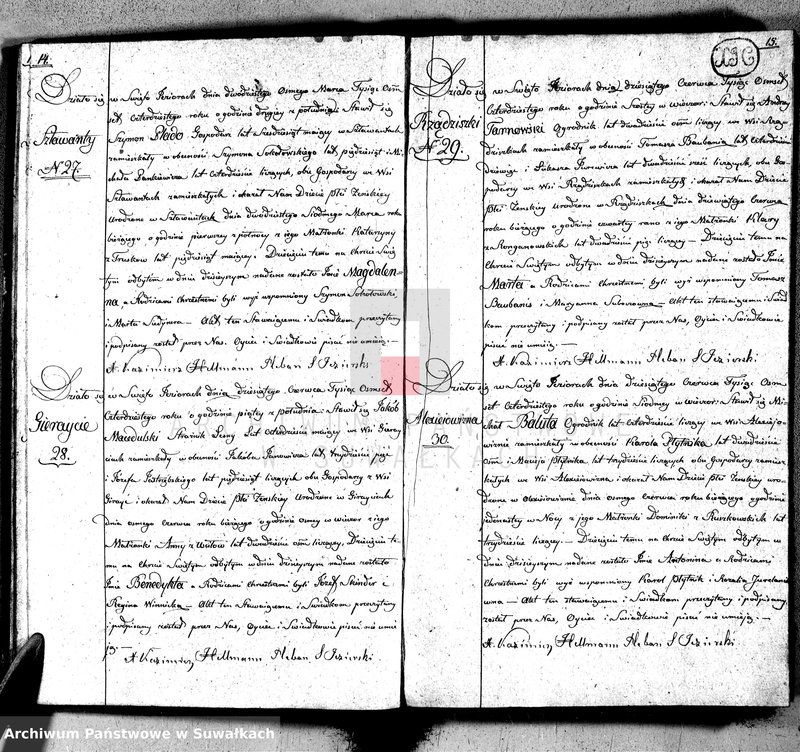 14.
Działo się w Święto Jeziorach dnia dwudziestego Osmego Marca Tysiąc Osm
set czterdziestego roku o godzinie drugiey z południa Stawił się
Sztawanty
N 27.
Szymon Gospodarz lat Szesdziesiąt maiący w Sztawantach
zamieszkały w obecności Szymona Sokołowskiego lat pięćdziesiąt i Mi
chała Jankiewicza lat czterdzieści liczących, obu Gospodarzy we Wsi
Sztawantach zamieszkałych i okazał Nam Dziecie płci Żeńskiey
Urodzone w Sztawantach dnia dwudziestego Siodmego Marca roku
bieżącego o godzinie pierwszey z północy z iego Małżonki Katarzyny
z lat pięćdziesiąt maiącey. Dziecięciu temu na Chrzcie Swię
tym odbytem w dniu dzisieyszym nadane zostało Imie Magdalen-
na, a Rodzicami Chrzestnemi byli wyż wspomniony Szymon Sokołowski,
i Marta Akt ten Stawaiącemu i Świadkom przeczytany
i podpisany został przez Nas, Oyciec i Świadkowie pisać nie umieią.
X. Kazimierz Hellmann Pleban S Jezierski
Działo się w Święto Jeziorach dnia dziesiątego Czerwca Tysiąc Osmset
Czterdziestego roku o godzinie piątey z południa Stawił się Jakób
Gieraycie
28.
Macedulski Straźnik Leśny Lat czterdzieści maiący we Wsi Gieray
ciach zamieszkały w obecności Jakóba lat trzydzieści pięć
i Józefa Jastrzębskiego lat pięćdziesiąt liczących obu Gospodarzy z Wsi
Girayć i okazał Nam Dziecie płci Żeńskiey Urodzone w Girayciach
dnia osmego Czerwca roku bieżącego o godzinie osmey w wieczor z iego
Małżonki Anny z lat dwadzieścia ośm liczącey, Dziecięciu te
mu na Chrzcie Swiętym odbytym w dniu dzisieyszym nadane zostało
Imie Benedykta a Rodzicami Chrzestnemi byli Józef Skinder i
Regina Winnicka Akt ten Stawaiącemu i Świadkom przeczytany
i podpisany został przez Nas, Oyciec i Świadkowie pisać nie umie
ią.
X Kazimierz Hellmann Pleban S Jezierski
15.
Działo się w Święto Jeziorach dnia dziesiątego Czerwca Tysiąc Osmset
Czterdziestego roku o godzinie Szostey w wieczor Stawił się Andrzey
Rządziszki
N 29.
Tarnowski Ogrodnik lat dwadzieścia ośm liczący we Wsi Rzą-
dziszkach zamieszkały w obecności Tomasza Baubania lat czterdzieści
i Łukasza lat dwadzieścia sześć liczących, obu Gos
podarzy we Wsi Rządziszkach zamieszkałych i okazał Nam Dziecie
płci Żeńskiey Urodzone w Rządziszkach dnia dziewiątego Czerwca
roku bieżącego o godzinie czwartey rano z iego Małżonki Klary
z lat dwadzieścia pięć liczącey Dziecięciu temu na
Chrzcie Świętym odbytym w dniu dzisieyszym nadane zostało Imie
Marta a Rodzicami Chrzestnemi byli wyż wspomniony Tomasz
Baubanis i Maryanna Akt ten stawaiącemu i Świad
kom przeczytany i podpisany został przez Nas, Oyciec i Świadkowie
pisać nie umieią.
X. Kazimierz Hellmann Pleban S Jezierski
Działo się w Święto Jeziorach dnia dziesiątego Czerwca Tysiąc Osm
set Czterdziestego roku o godzinie Siodmey w wieczor Stawił się Mi
Alexiejowizna
30.
chał Baluta Ogrodnik lat czterdzieści liczący we Wsi Alexiejo
wiznie zamieszkały w obecności Karola Plytnika lat dwadzieścia
ośm i Macieja Plytnika lat trzydzieści liczących obu Gospodarzy zamiesz
kałych we Wsi Alexiejowizna i okazał Nam Dziecie płci Żeńskiey uro
dzone w Alexiejowiznie dnia osmego Czerwca roku bieżącego o godzinie
iedenastey w Nocy z iego Małżonki Dominiki z Ruszkowskich lat
trzydzieści liczącey Dziecięciu temu na Chrzcie Swiętym odbytym w
dniu dzisieyszym nadane zostało Imie Antonina a Rodzicami
Chrzestnemi byli wyż wspomniony Karol Plytnik i Rozalia
wna Akt ten stawaiącemu i Świadkom przeczytany i podpisany
został przez Nas, Oyciec i Świadkowie pisać nie umieią.
X. Kazimierz Hellmann Pleban S Jezierski
Archiwum Państwowe w Suwałkach